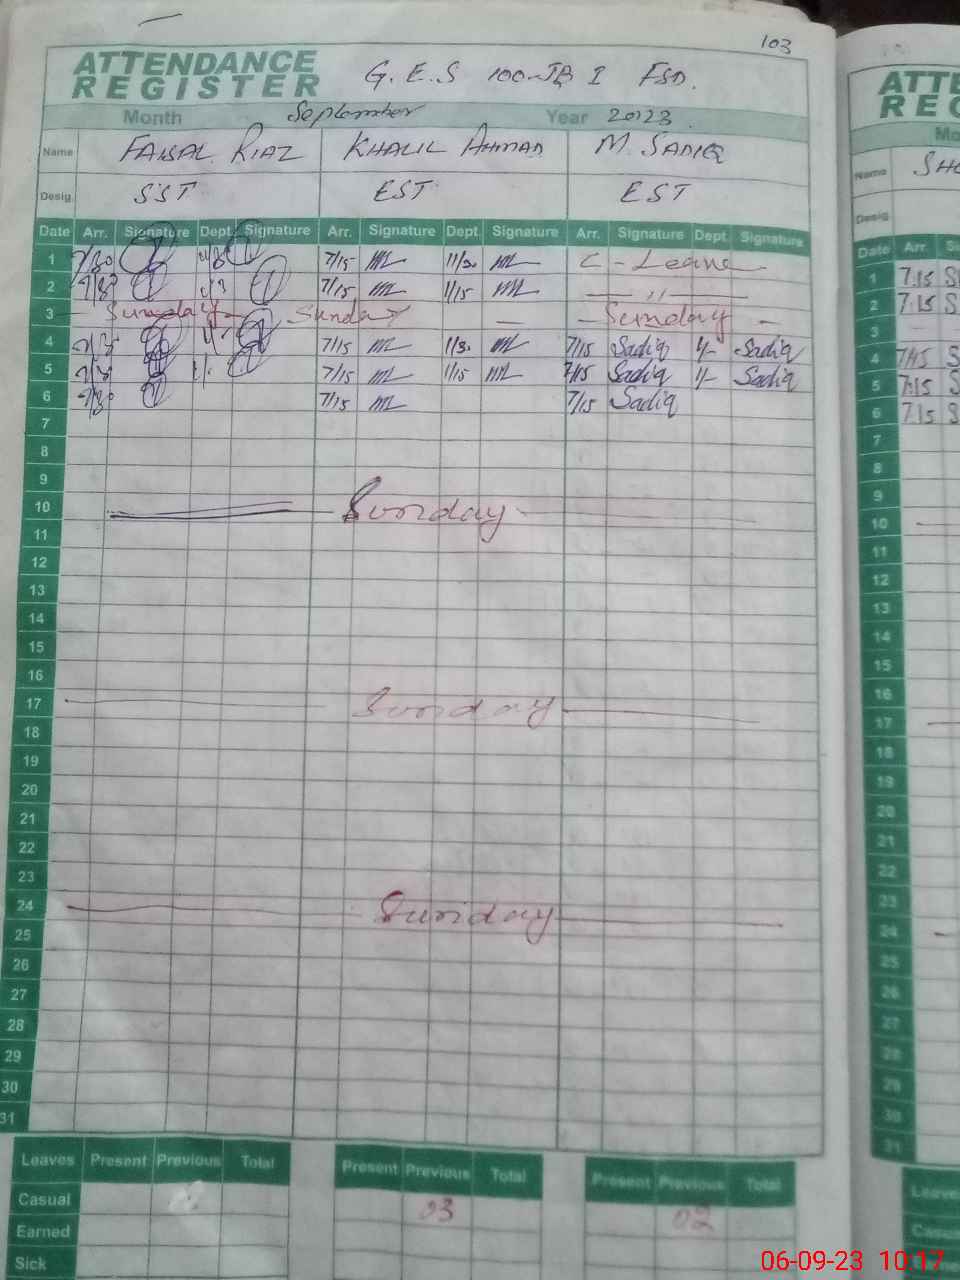 103
ATTENDANCE REGISTER
G.E.S 100-JB I FSD.
Month September Year 2023
Name FAISAL RIAZ KHALIL AHMAD M. SADIQ
Desig. SST EST EST
Date Arr. Signature Dept. Signature Arr. Signature Dept. Signature Arr. Signature Dept. Signature
1 7/30 7/15 11/30 C-Leave
2 7/15 1/15 — 〃 —
3 Sunday Sunday — Sunday —
4 7/15 1/30 7/15 Sadiq 1/- Sadiq
5 7/15 1/15 7/15 Sadiq 1/- Sadiq
6 7/30 7/15 7/15 Sadiq
7
8
9
10 Sunday
11
12
13
14
15
16
17 Sunday
18
19
20
21
22
23
24 Sunday
25
26
27
28
29
30
31
Leaves Present Previous Total Present Previous Total Present Previous Total
Casual 03 02
Earned
Sick
ATTE
REG
Mo
Name SHO
Desig.
Date Arr. Si
1 7:15
2 7:15
3
4 7/15
5 7:15
6 7:15
7
8
9
10
11
12
13
14
15
16
17
18
19
20
21
22
23
24
25
26
27
28
29
30
31
Leave
Casu
06-09-23 10:17